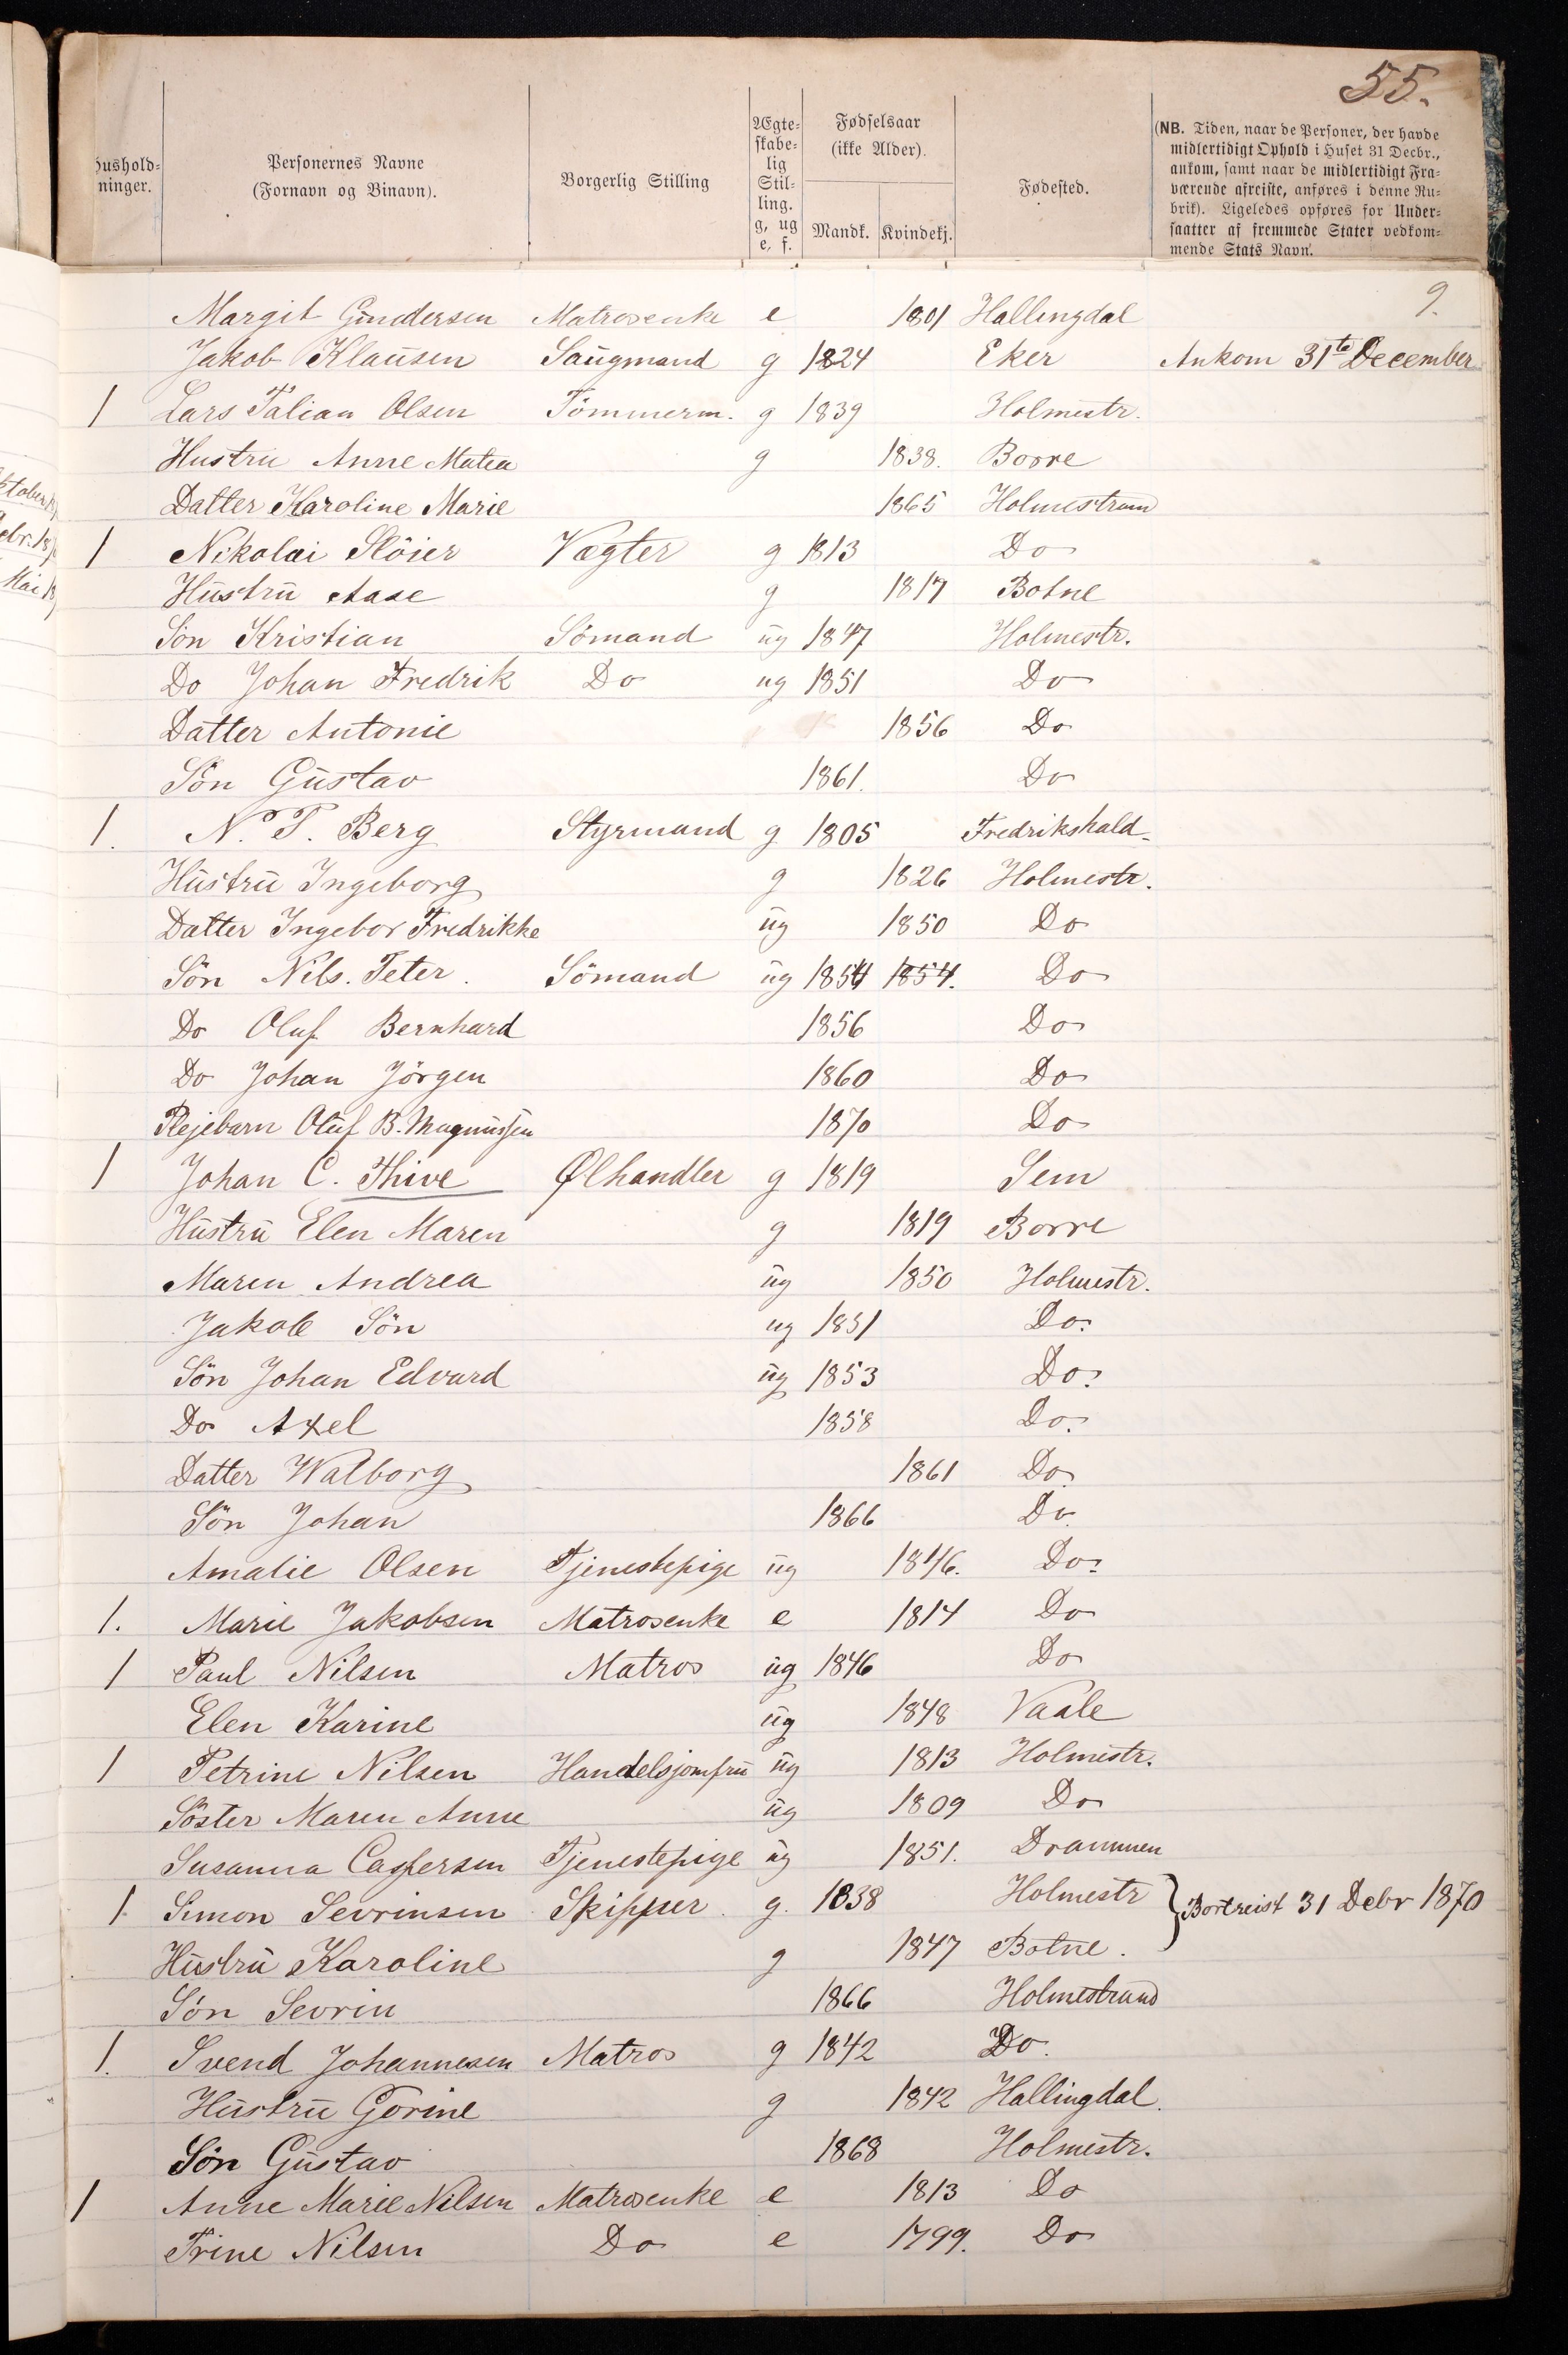 55.
Hushold-
ninger.
Personernes Navne
(Fornavn og Binavn).
Borgerlig Stilling
Ægte-
skabe-
lig
Stil-
ling.
g, ug
e, f.
Fødselsaar
(ikke Alder).
Mandk. Kvindekj.
Fødested.
(NB. Tiden, naar de Personer, der havde
midlertidigt Ophold i Huset 31 Decbr.,
ankom, samt naar de midlertidigt Fra-
værende afreiste, anføres i denne Ru-
brik). Ligeledes opføres for Under-
saatter af fremmede Stater vedkom-
mende Stats Navn.
9.
Margit Gundersen Matrosenke e 1801 Hallingdal
Jakob Klausen Saugmand g 1824 Eker Ankom 31te December
1 Lars Palian Olsen Tömmerm. g 1839 Holmestr.
Hustru Anne Matea g 1838. Borre
Datter Karoline Marie 1865 Holmestrand
1 Nikolai Slöier Vægter g 1813 Do
Hustru Aase g 1817 Botne
Sön Kristian Sömand ug 1847 Holmestr.
Do Johan Fredrik Do ug 1851 Do
Datter Antonie 1856 Do
Sön Gustav 1861. Do
1. N. P. Berg Styrmand g 1805 Fredrikshald
Hustru Ingeborg g 1826 Holmestr.
Datter Ingebor Fredrikke ug 1850 Do
Sön Nils. Peter. Sömand ug 1854 1854. Do
Do Oluf Bernhard 1856 Do
Do Johan Jörgen 1860 Do
Plejebarn Oluf B. Magnussen 1870 Do
1 Johan C. Thive Ølhandler g 1819 Sem
Hustru Elen Maren g 1819 Borre
Maren Andrea ug 1850 Holmestr.
Jakob Sön ug 1851 Do.
Sön Johan Edvard ug 1853 Do.
Do Axel 1858 Do.
Datter Walborg 1861 Do
Sön Johan 1866 Do
Amalie Olsen Tjenestepige ug 1846. Do.
1. Marie Jakobsen Matrosenke e 1814 Do
1 Paul Nilsen Matros ug 1846 Do
Elen Karine ug 1848 Vaale
1 Petrine Nilsen Handelsjomfru ug 1813 Holmestr.
Söster Maren Anne ug 1809 Do
Susanna Caspersen Tjenestepige ug 1851. Drammen
1 Simon Sevrinsen Skipper. g. 1838 Holmestr } Bortreist 31 Debr 1870
Hustru Karoline g 1847 Botne.
Sön Sevrin 1866 Holmestrand
1. Svend Johannesen Matros g 1842 Do.
Hustru Gorine g 1842 Hallingdal.
Sön Gustav 1868 Holmestr.
1 Anne Marie Nilsen Matrosenke e 1813 Do
Trine Nilsen Do e 1799. Do